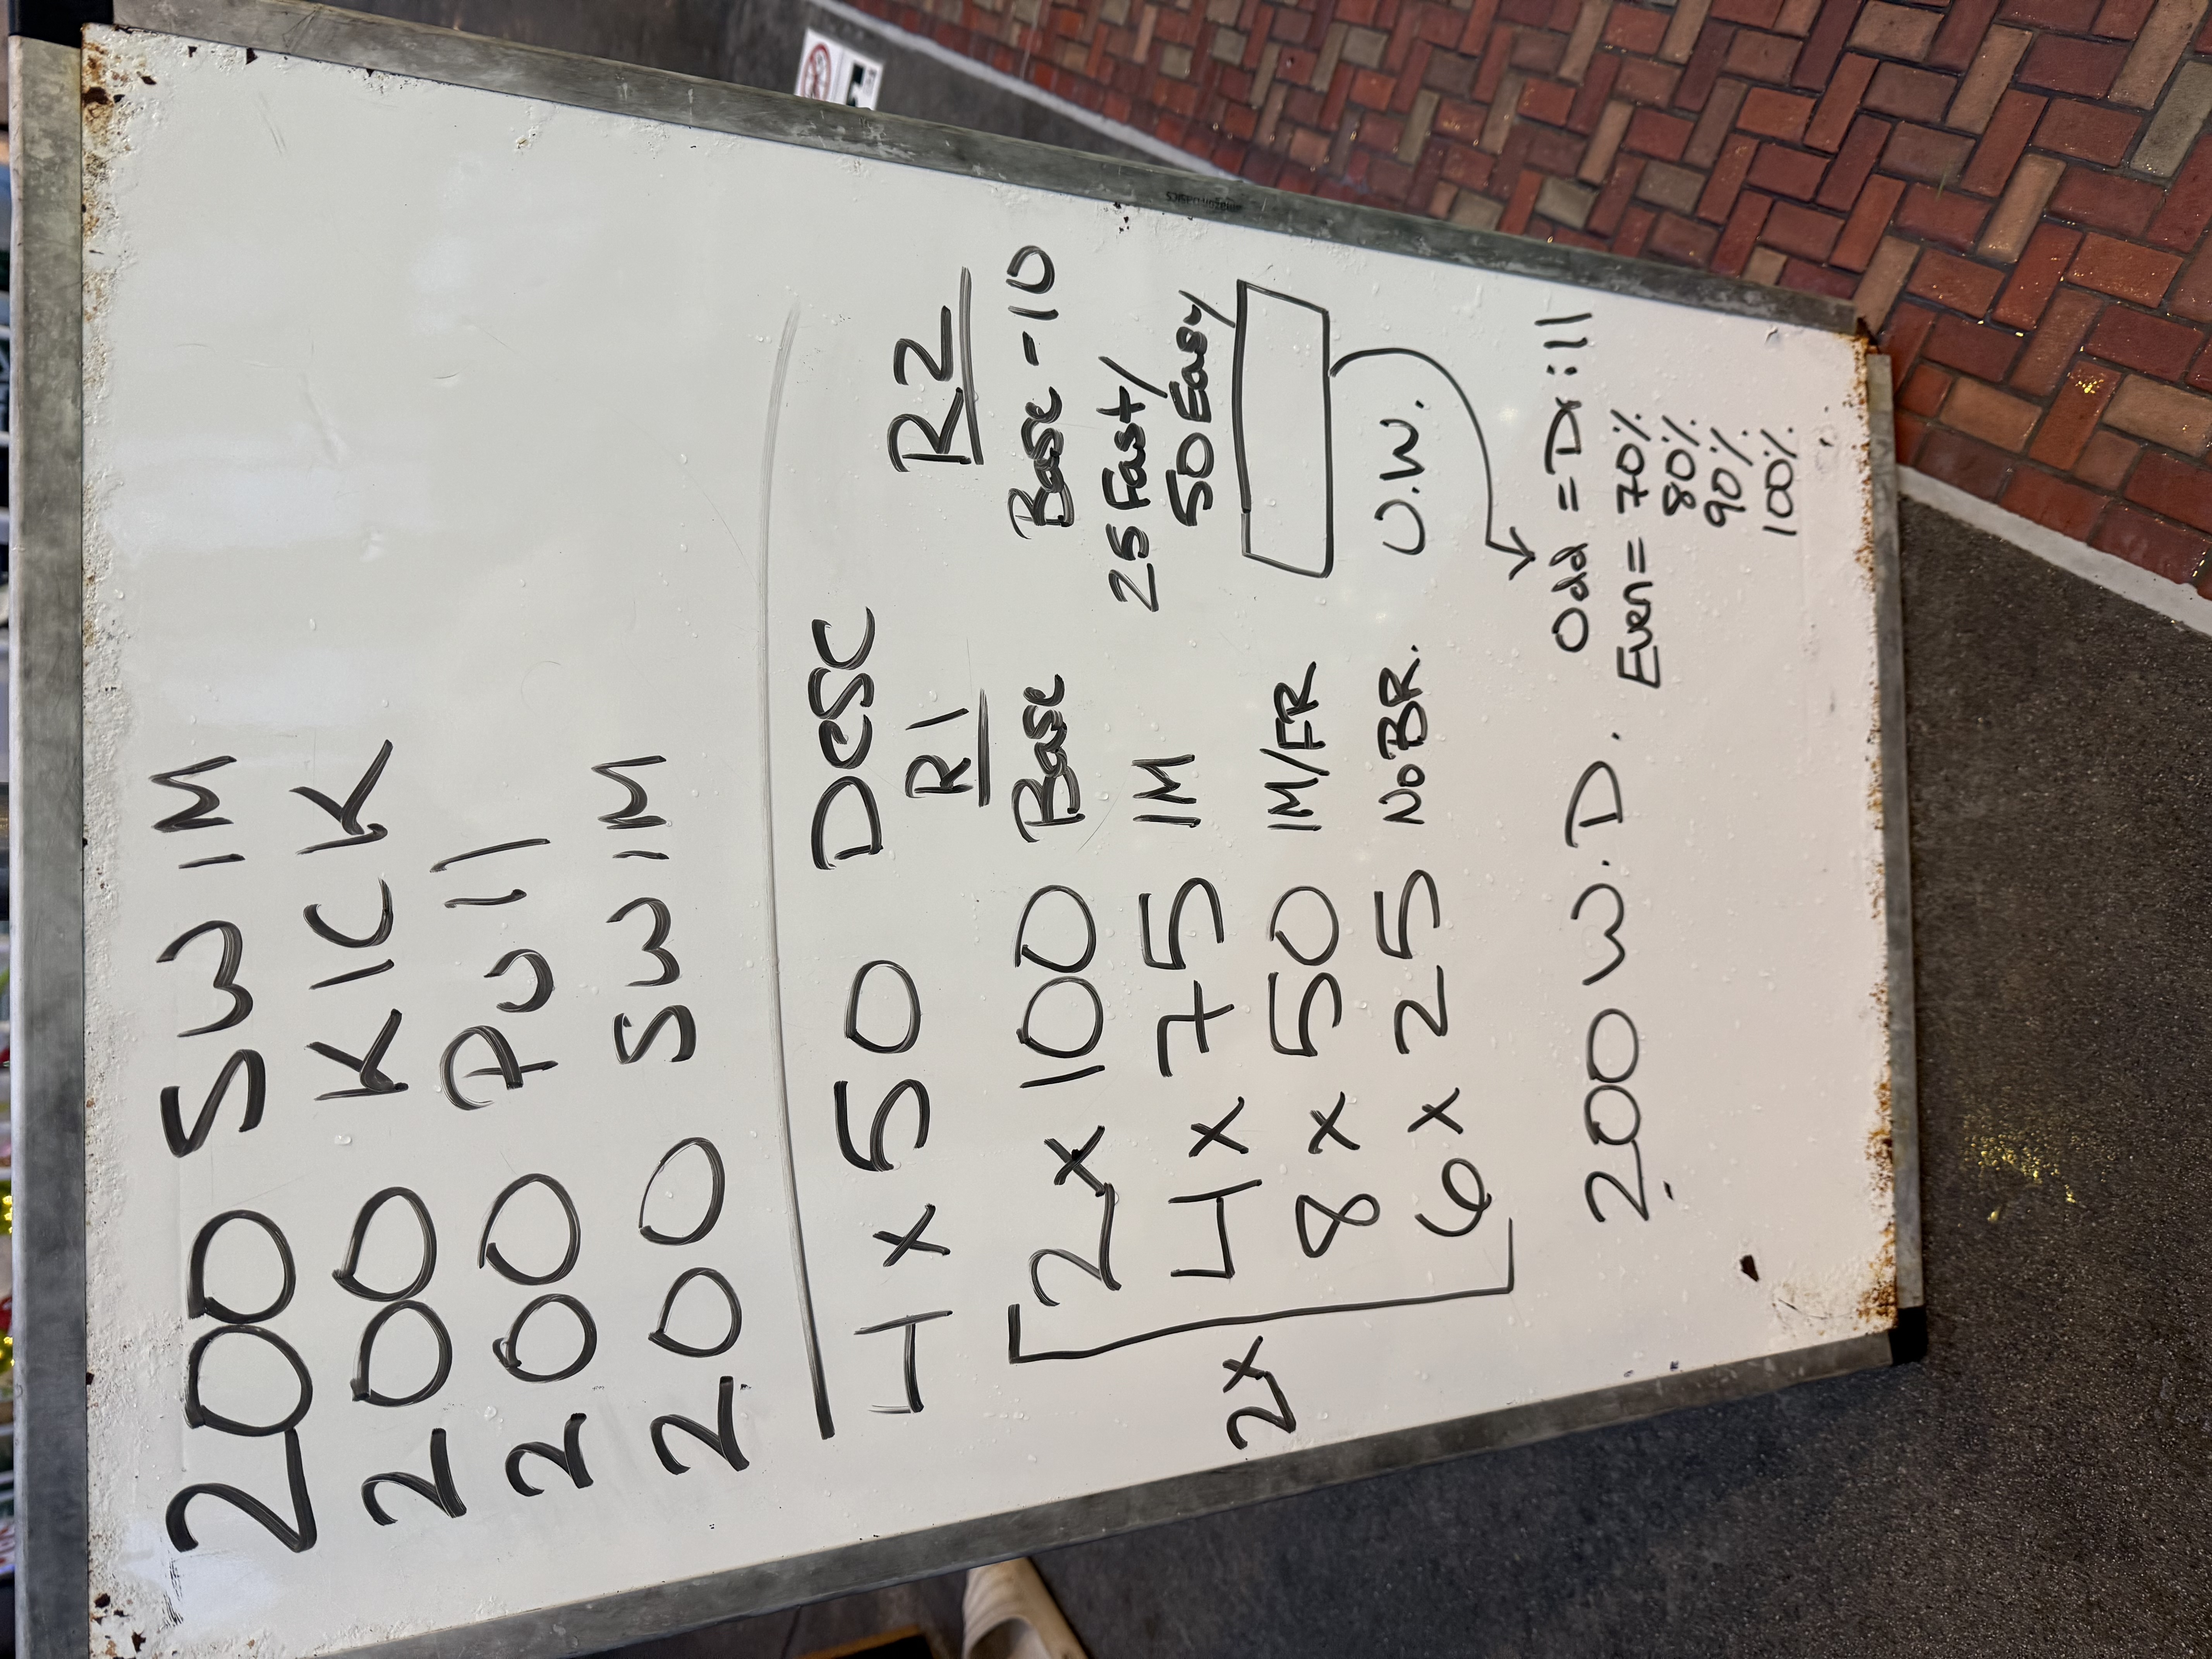 200 SWIM
200 KICK
200 Pull
200 SWIM
4 x 50 DESC
R1 R2
2x 100 Base Base -10
4 x 75 IM 25 Fast/
50 Easy
8 x 50 IM/FR
6 x 25 NoBR. U.W.
2x
200 W.D.
Odd = Drill
Even = 70%
80%
90%
100%
amazonbasics